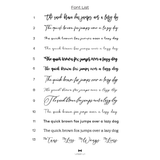 Font List
1 The quick brown fox jumps over a lazy dog
2 The quick brown fox jumps over a lazy dog
3 The quick brown fox jumps over a lazy dog
4 The quick brown fox jumps over a lazy dog
5 The quick brown fox jumps over a lazy dog
6 The quick brown fox jumps over a lazy dog
7 The quick brown fox jumps over a lazy dog
8 The quick brown fox jumps over a lazy dog
9 The quick brown fox jumps over a lazy dog
10 The quick brown fox jumps over a lazy dog
11 The quick brown fox jumps over a lazy dog
12 The quick brown fox jumps over a lazy dog
13